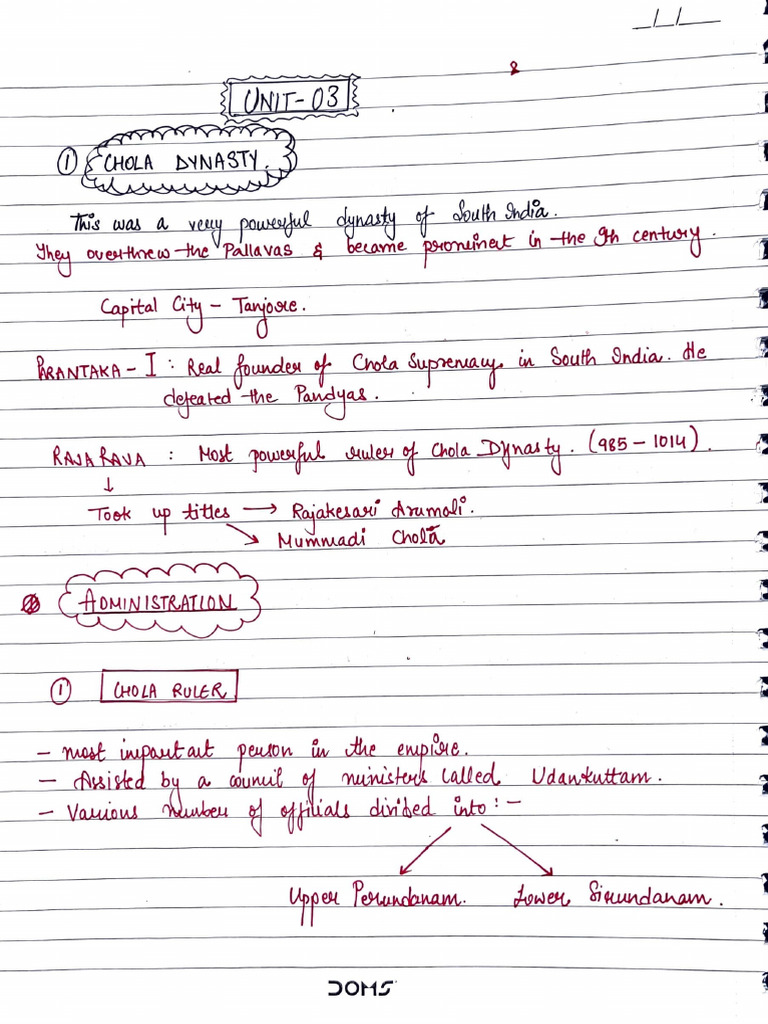 UNIT-03
① CHOLA DYNASTY.
This was a very powerful dynasty of South India.
They overthrew the Pallavas & became prominent in the 9th century.
Capital City - Tanjore.
PARANTAKA - I : Real founder of Chola Supremacy in South India. He
defeated the Pandyas.
RAJARAJA : Most powerful ruler of Chola Dynasty. (985 - 1014).
↓
Took up titles → Rajakesari Arumoli.
↘ Mummadi Chola
ADMINISTRATION
① CHOLA RULER
- most important person in the empire.
- Assisted by a council of ministers called Udankuttam.
- Various number of officials divided into : -
Upper Perundanam. Lower Sirundanam.
DOMS